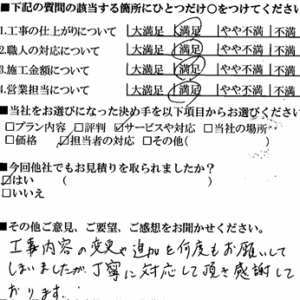 ■下記の質問の該当する箇所にひとつだけ○をつけてください
1.工事の仕上がりについて 大満足 満足 やや不満 不満
2.職人の対応について 大満足 満足 やや不満 不満
3.施工金額について 大満足 満足 やや不満 不満
4.営業担当について 大満足 満足 やや不満 不満
■当社をお選びになった決め手を以下項目からお選びください
□プラン内容 □評判 ☑サービスや対応 □当社の場所
□価格 ☑担当者の対応 □その他(
■今回他社でもお見積りを取られましたか?
☑はい (
□いいえ
■その他ご意見、ご要望、ご感想をお聞かせください。
工事内容の変更や追加を何度もお願いして
しまいましたが、丁寧に対応して頂き感謝して
おります。